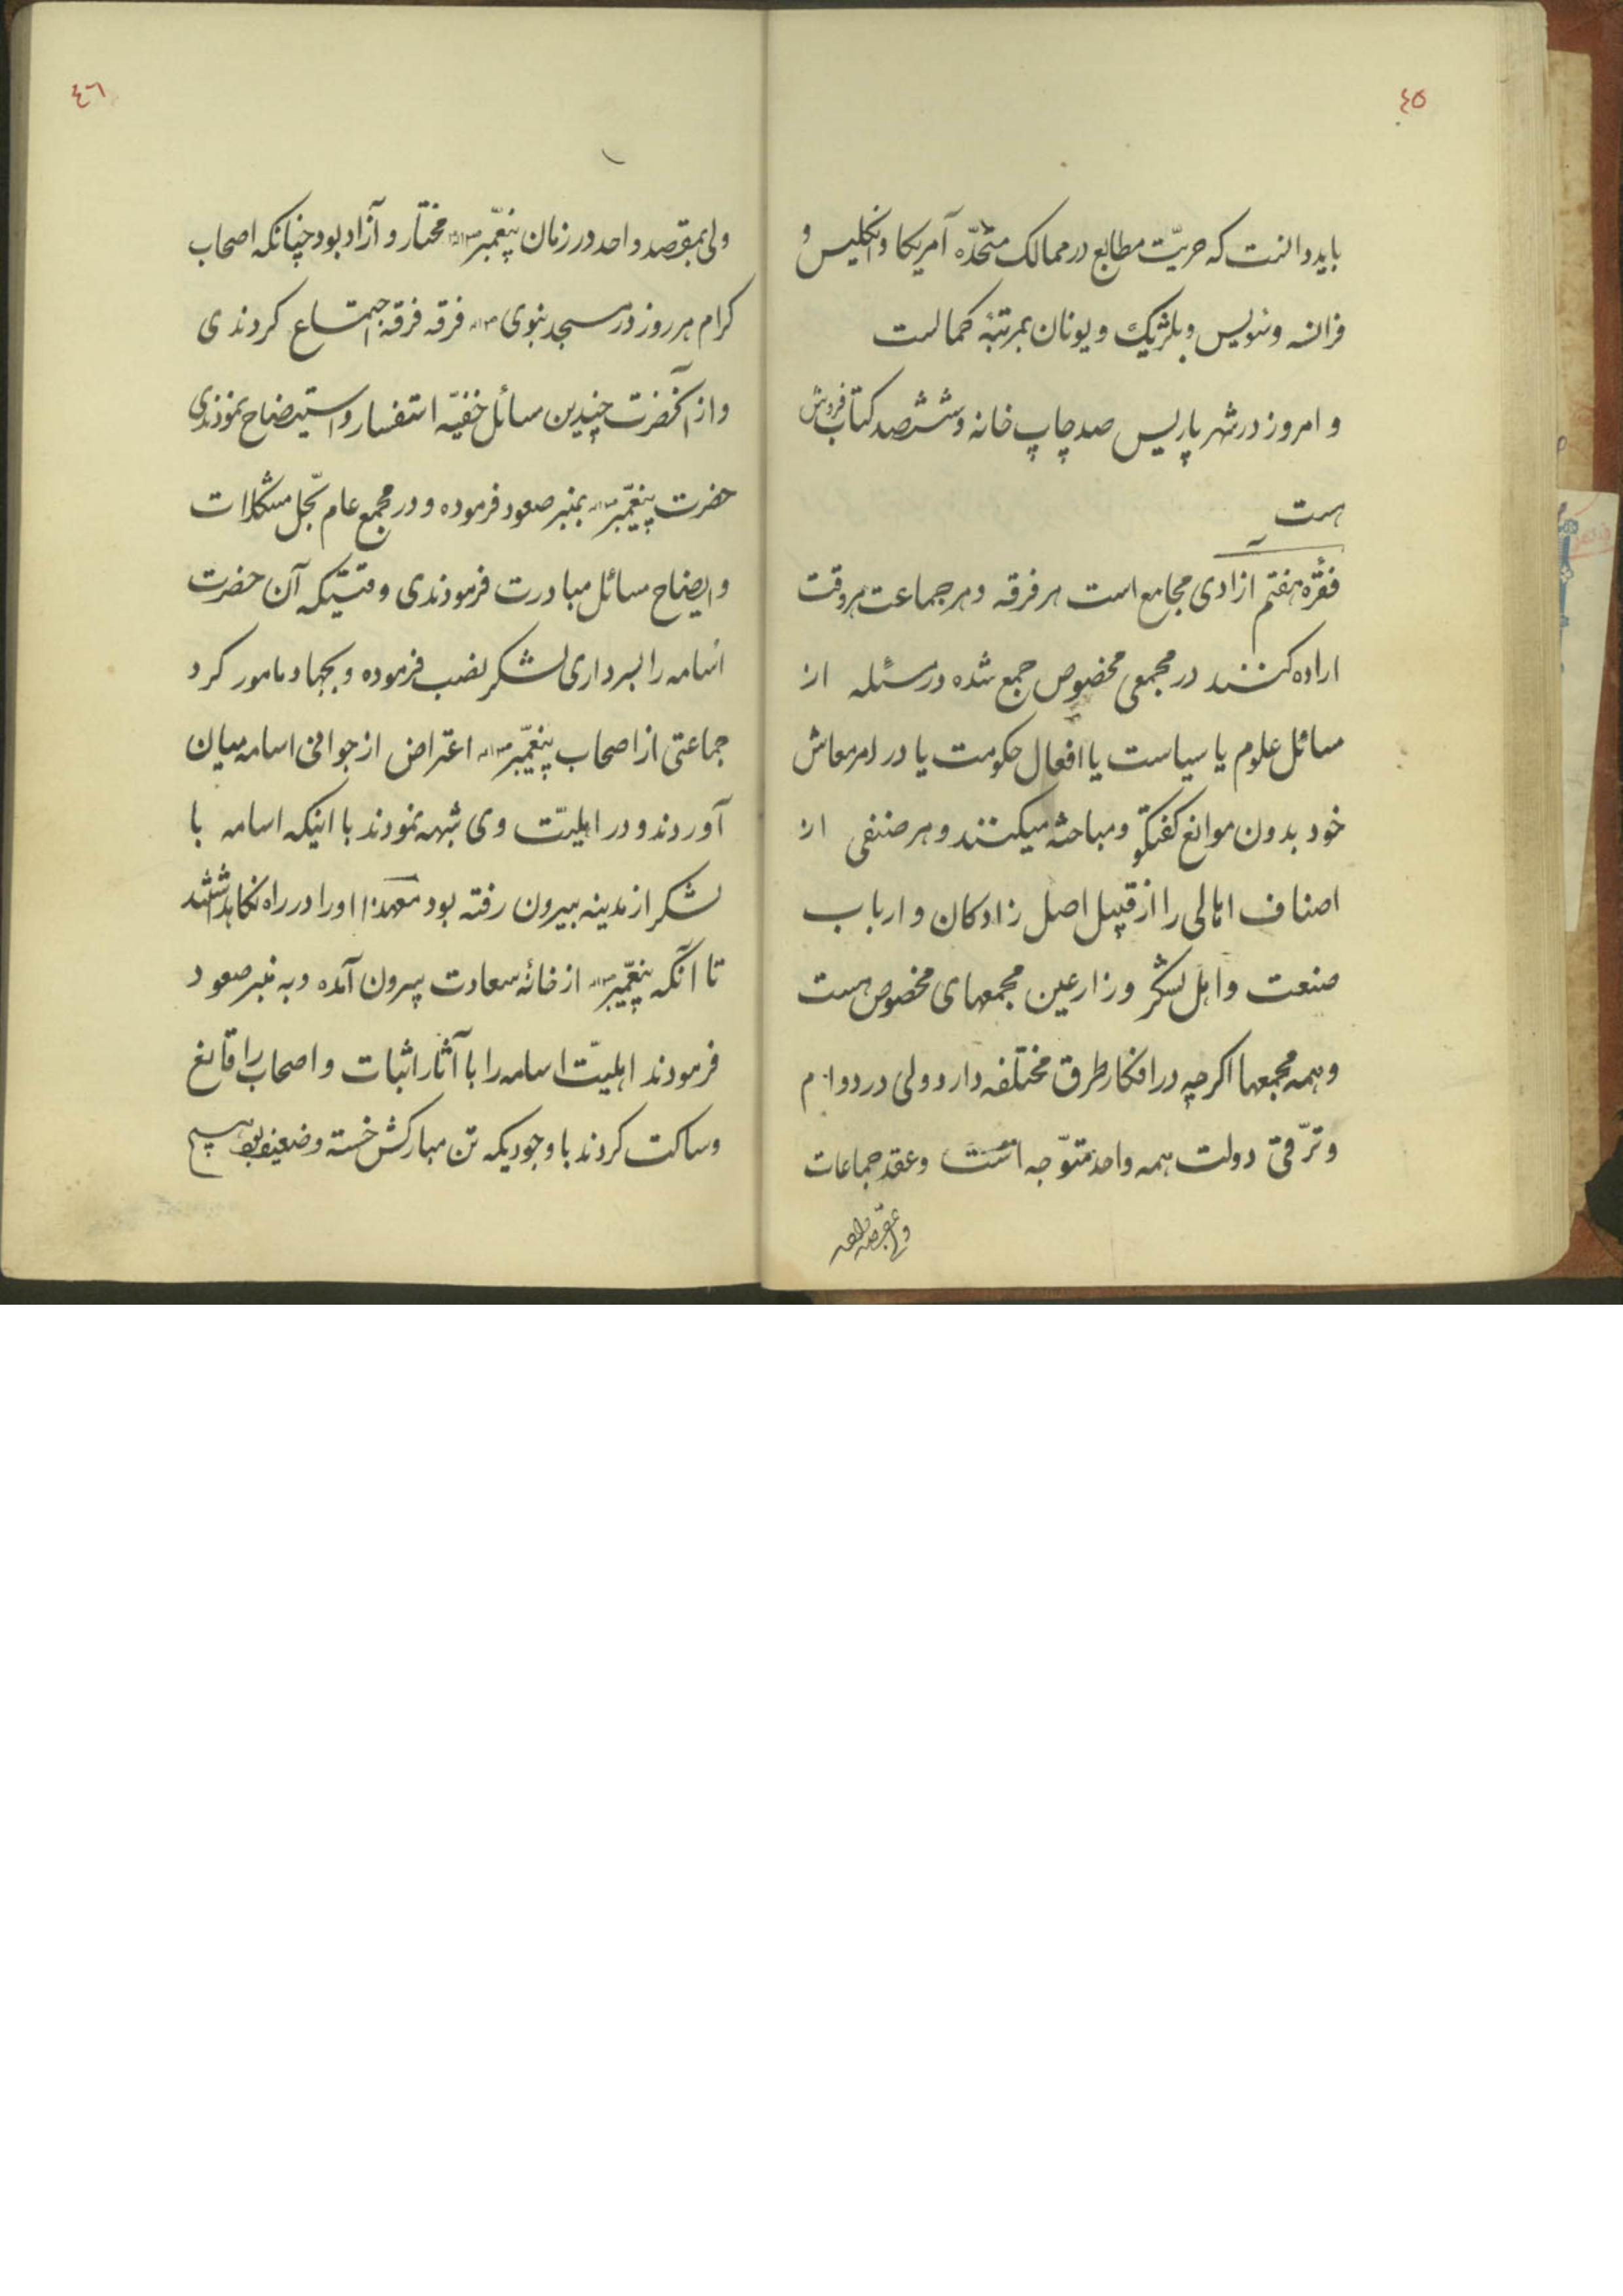 ٤٥
باید دانست که حریّت مطابع در ممالک متّحدّه آمریکا و انکلیس و
فرانسه و سویس و بلژیک و یونان بمرتبهٔ کمالست
و امروز در شهر پاریس صد چاپ خانه و ششصد کتاب فروش
هست
فقرهٔ هفتم ازادی مجامع است هر فرقه و هر جماعت هر وقت
اراده کنند در مجمعی مخصوص جمع شده در مسئله از
مسائل علوم یا سیاست یا افعال حکومت یا در امر معاش
خود بدون موانع کفتکو و مباحثه میکنند و هر صنفی از
اصناف اهالی را از قبیل اصل زادکان و ارباب
صنعت و اهل لشکر و زارعین مجمعهای مخصوص هست
و همه مجمعها اکرچه در افکار طرق مختلفه دارد ولی در دوام
و ترّقی دولت همه واحد متوّجه است و عقد جماعات
٤٦
ولی بمقصد واحد در زمان پیغمّبر مختار و آزاد بود چنانکه اصحاب
کرام هر روز در مسجد نبوی فرقه فرقه اجتماع کردندی
و از آنحضرت چندین مسائل خفیّه استفسار و استیضاح نمودندی
حضرت پیغمّبر بمنبر صعود فرموده و در مجمع عام بحّل مشکلات
و ایضاح مسائل مبادرت فرمودندی وقتیکه آن حضرت
اسامه را بسرداری لشکر نصب فرموده و بجهاد مامور کرد
جماعتی از اصحاب پیغمّبر اعتراض از جوانی اسامه میان
آوردند و در اهلیّت وی شبهه نمودند با اینکه اسامه با
لشکر از مدینه بیرون رفته بود معهذا او را در راه نکاهداشتند
تا انکه پیغمّبر از خانهٔ سعادت بیرون آمده و به منبر صعود
فرمودند اهلیّت اسامه را با آثار اثبات و اصحاب را قانع
و ساکت کردند با وجودیکه تن مبارکش خسته و ضعیف بود هیچ